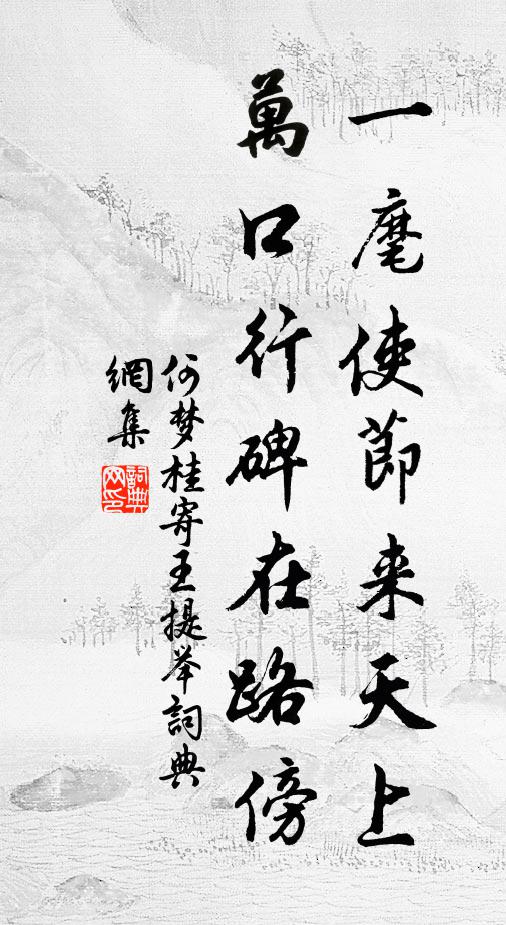 一麾使節来天上
萬口行碑在路傍
何梦桂寄王提举詞典
網集
詞典網印